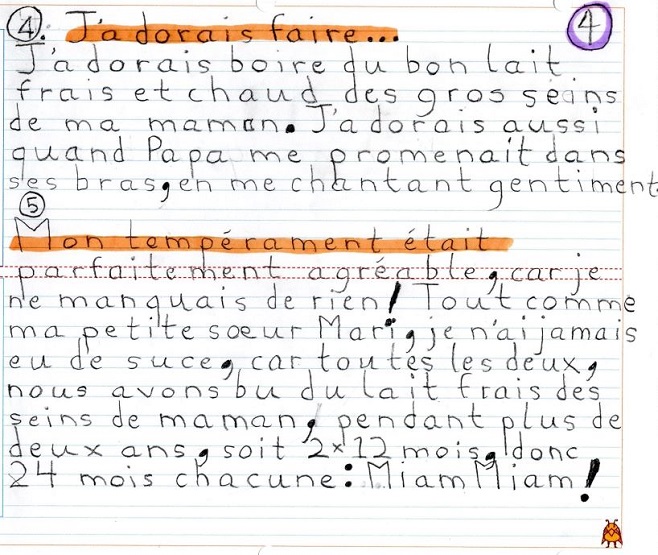 ④. J'adorais faire... 4
J'adorais boire du bon lait
frais et chaud des gros seins
de ma maman. J'adorais aussi
quand Papa me promenait dans
ses bras, en me chantant gentiment
⑤
Mon tempérament était
parfaitement agréable, car je
ne manquais de rien! Tout comme
ma petite soeur Mari, je n'ai jamais
eu de suce, car toutes les deux,
nous avons bu du lait frais des
seins de maman, pendant plus de
deux ans, soit 2x12 mois, donc
24 mois chacune: Miam Miam!